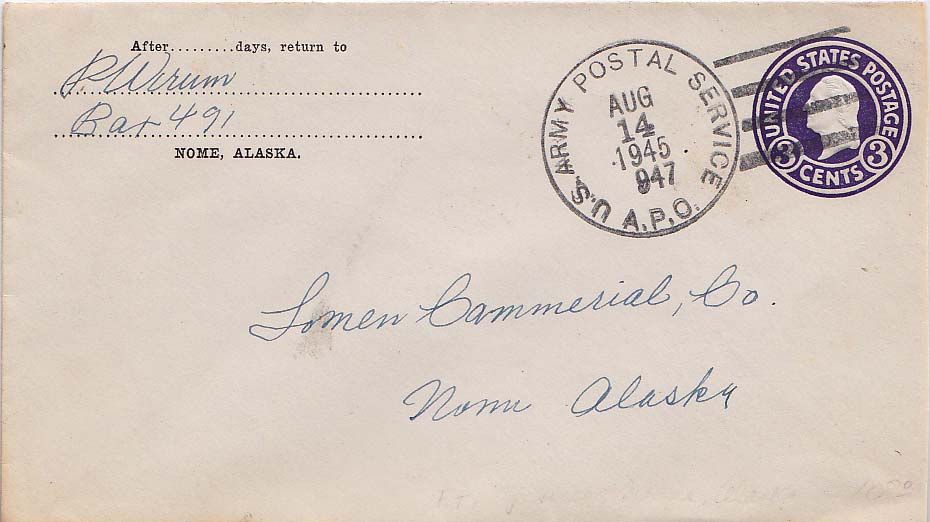 After.........days, return to
P. Wirum
Box 491
NOME, ALASKA.
U.S. ARMY POSTAL SERVICE
AUG
14
1945
947
A.P.O.
UNITED STATES POSTAGE
3 CENTS 3
Lomen Commerial, Co.
Nome Alaska